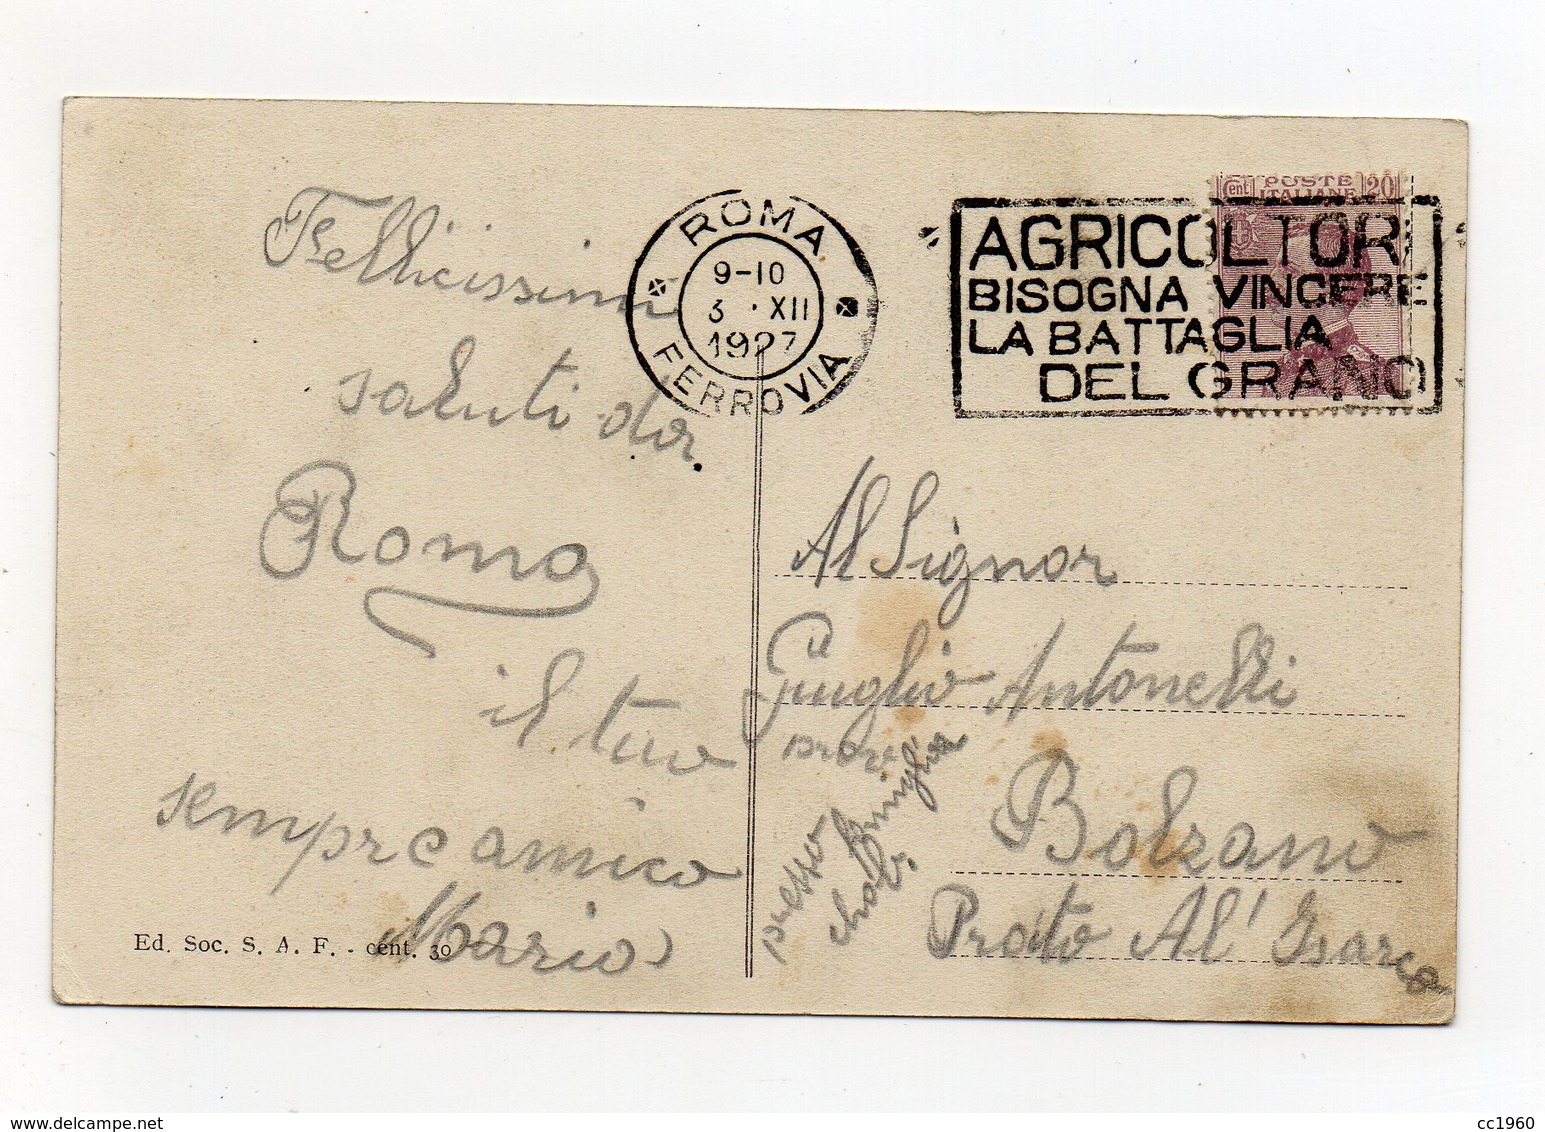 ROMA
9-10
3 · XII
1927
FERROVIA
Cent POSTE ITALIANE 20
AGRICOLTORI
BISOGNA VINCERE
LA BATTAGLIA
DEL GRANO
Fellicissimi
saluti da
Roma
il tuo
sempre amico
Mario
Ed. Soc. S. A. F. - cent. 30
Al Signor
Giuglio Antonelli
presso
Bolzano
Prato Al' Isarco
www.delcampe.net
cc1960